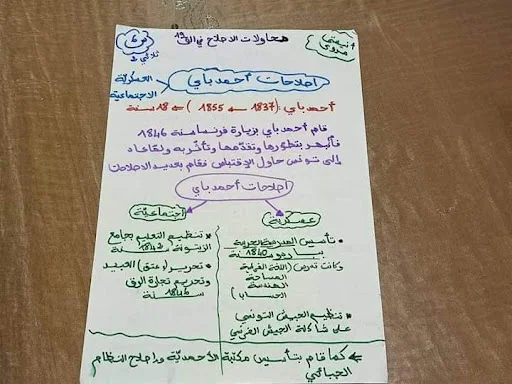 محاولات الإصلاح في الق 19
أنيسة
فروي
ثلاثي 2
إصلاحات أحمد باي
العسكرية
الاجتماعية
أحمد باي: (1837 ← 1855) = 18 سنة
قام أحمد باي بزيارة فرنسا سنة 1846
فانبهر بتطورها وتقدمها وتأثر به ولما عاد
إلى تونس حاول الاقتباس فقام بعديد الإصلاحات
إصلاحات أحمد باي
عسكرية
تأسيس المدرسة الحربية
بباردو سنة 1840
وكانت تدرس (اللغة الفرنسية
المساحة
الهندسة
الحساب)
تنظيم الجيش التونسي
على شاكلة الجيش الفرنسي
اجتماعية
تنظيم التعليم بجامع
الزيتونة سنة 1842
تحرير (عتق) العبيد
وتحريم تجارة الرق
سنة 1846
كما قام بتأسيس مكتبة الأحمدية وإصلاح النظام
الجبائي